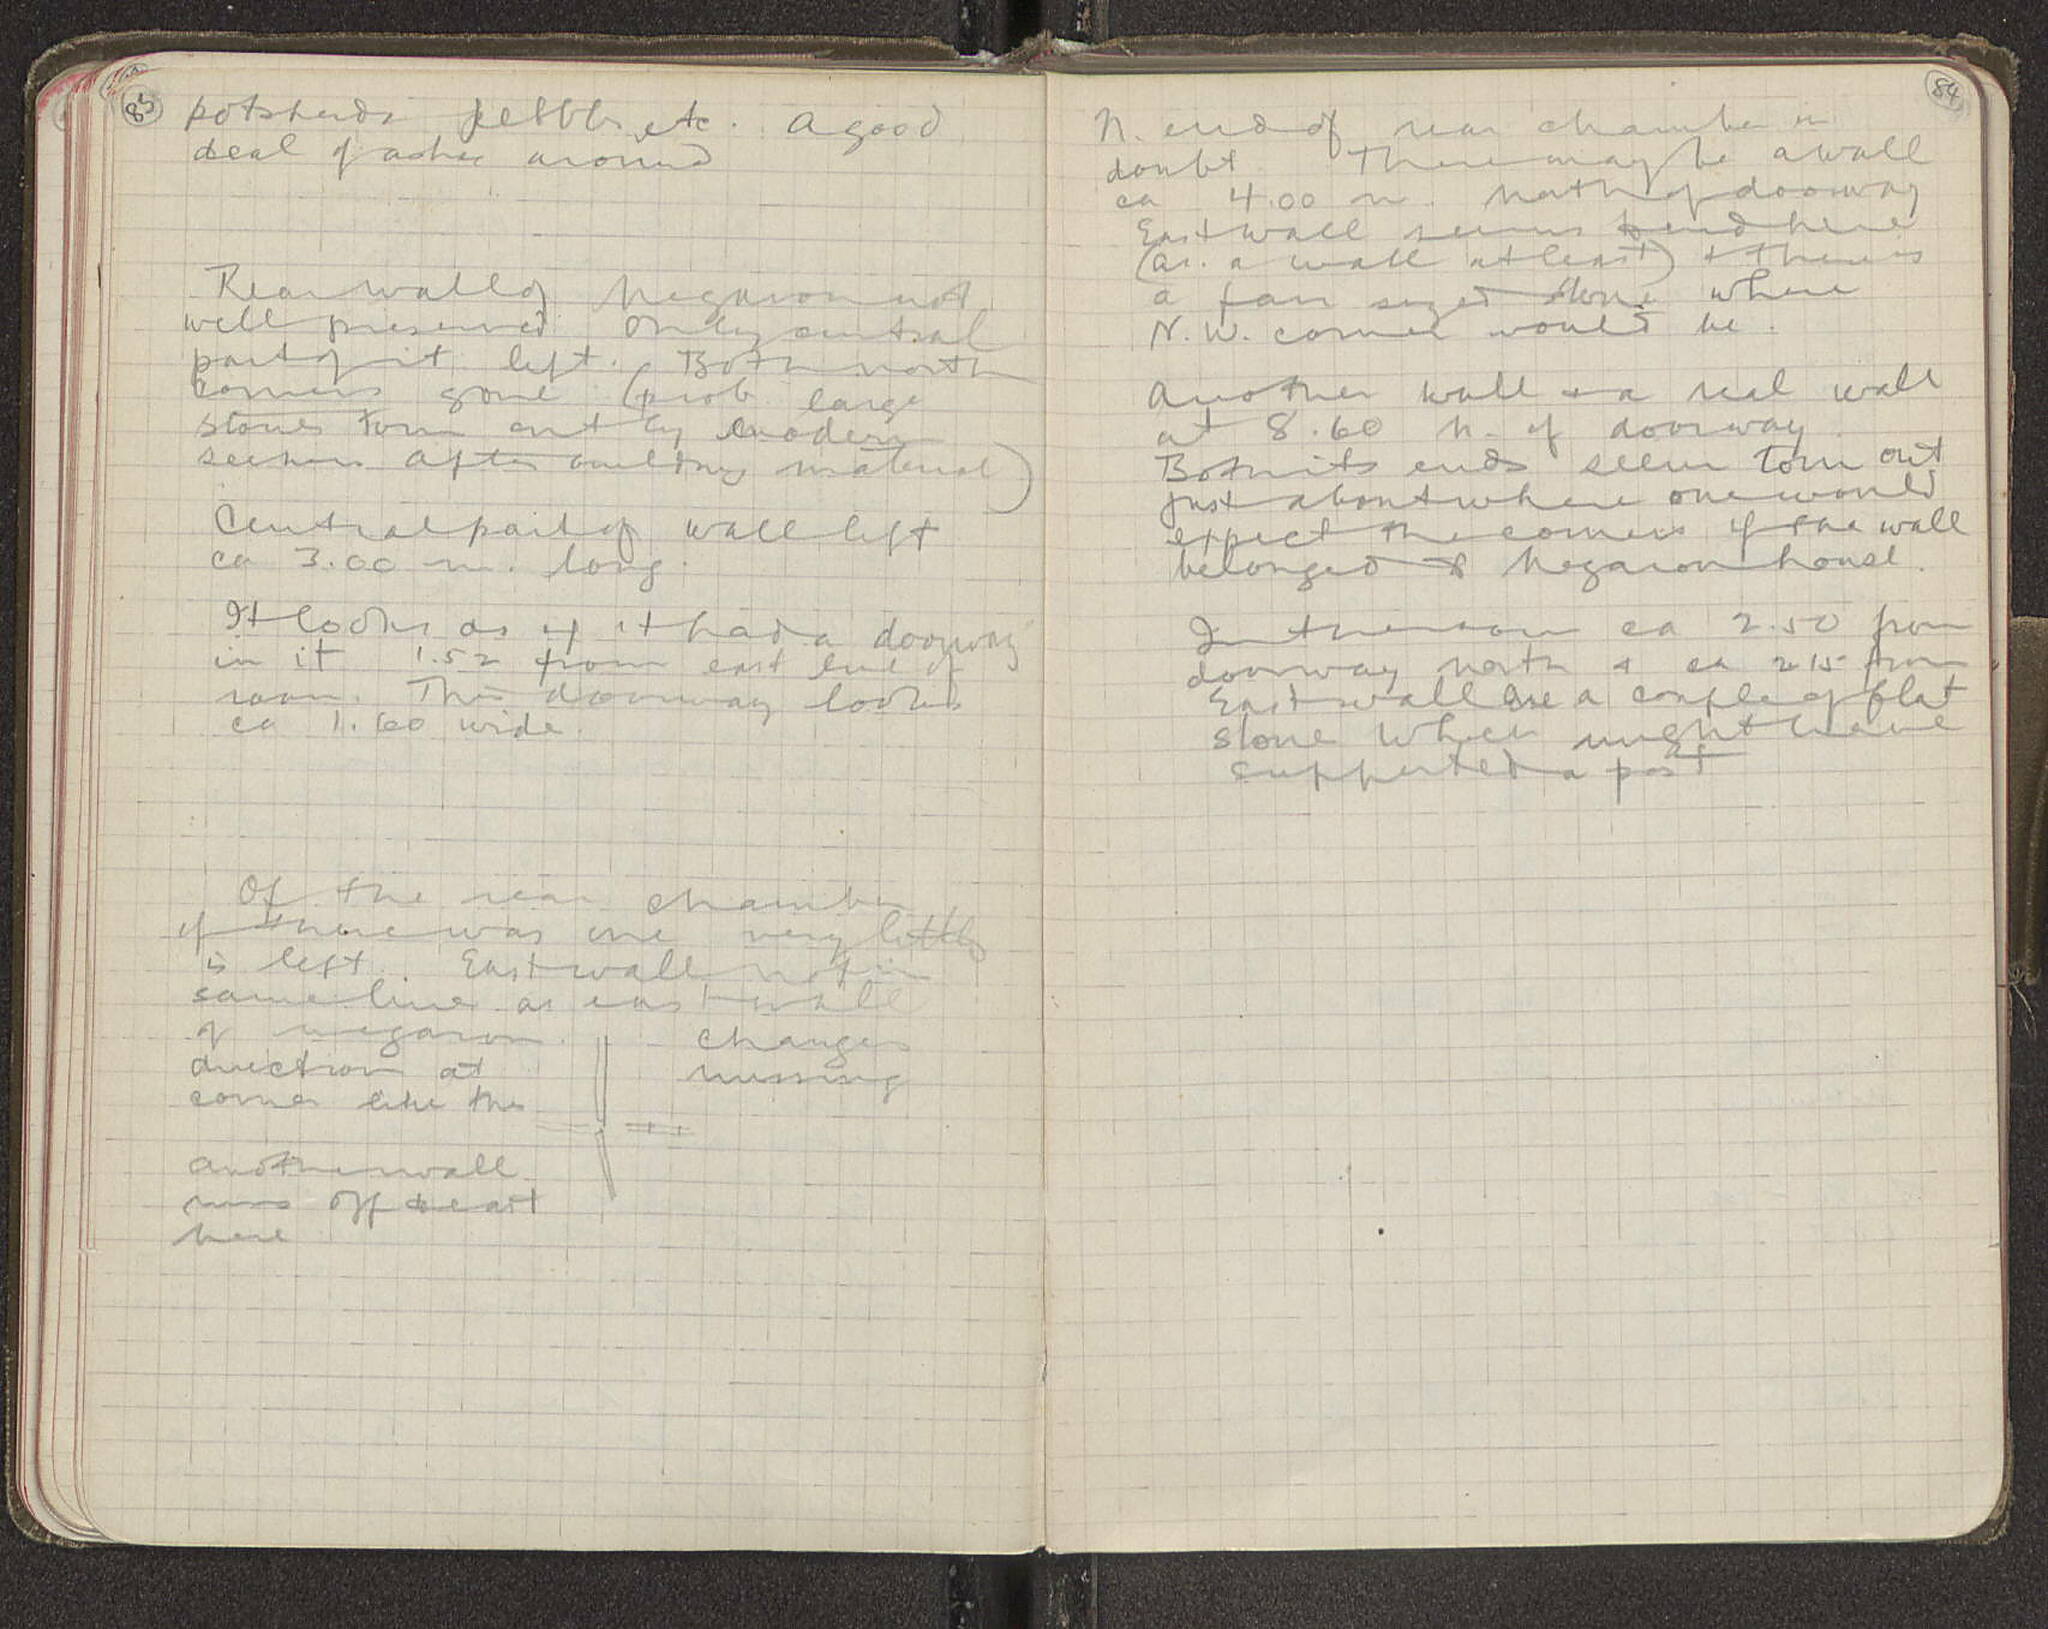 83
potsherds pebbles etc. A good
deal of ashes around
Rear wall of Megaron not
well preserved Only central
part of it left. Both north
corners gone (prob. large
stones torn out by modern
seekers after building material)
Central part of wall left
ca 3.00 m. long.
It looks as if it had a doorway
in it 1.52 from east end of
room. This doorway looks
ca 1.60 wide.
Of the rear chamber
if there was one very little
is left. East wall not in
same line as east wall
of megaron. changes
direction at missing
corner like this
another wall
runs off to east
here
84
N. end of rear chamber in
doubt There may be a wall
ca 4.00 m. north of doorway
East wall seems to end here
(as a wall at least) + there is
a fair sized stone where
N.W. corner would be.
Another wall + a real wall
at 8.60 N. of doorway
Both its ends seem torn out
just about where one would
expect the corners if the wall
belonged to Megaron house.
In the room ca 2.50 from
doorway north + ca 2.15 from
East wall are a couple of flat
stone which might have
supported a post